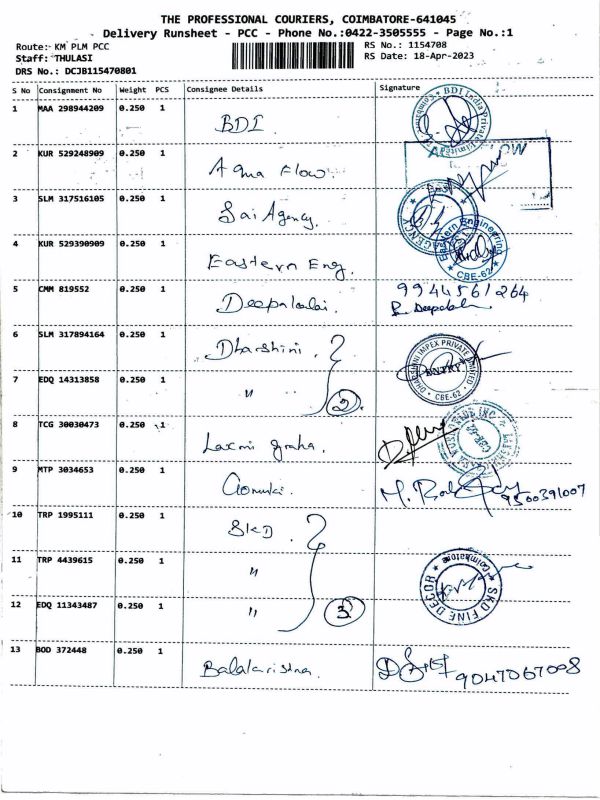 THE PROFESSIONAL COURIERS, COIMBATORE-641045
Delivery Runsheet - PCC - Phone No.:0422-3505555 - Page No.:1
Route:- KM PLM PCC
RS No.: 1154708
Staff: THULASI
RS Date: 18-Apr-2023
DRS No.: DCJB115470801
S No Consignment No Weight PCS Consignee Details Signature
1 MAA 298944209 0.250 1 BDI
BDI India Private Limited
2 KUR 529248909 0.250 1 Aqua Flow.
3 SLM 317516105 0.250 1 Sai Agency.
4 KUR 529390909 0.250 1 Eastern Eng.
Eastern Engineering
CBE-62
5 CMM 819552 0.250 1 Deepalalai
9944561264
6 SLM 317894164 0.250 1 Dharshini.
DHARSHINI IMPEX PRIVATE LIMITED
ENTRY
CBE-62
7 EDQ 14313858 0.250 1 "
2
8 TCG 30030473 0.250 1 Laxmi graha.
9 MTP 3034653 0.250 1 Gomuki.
9500391007
10 TRP 1995111 0.250 1 SKD.
11 TRP 4439615 0.250 1 "
SKD FINE DECOR
Coimbatore
12 EDQ 11343487 0.250 1 "
3
13 BOD 372448 0.250 1 Balakrishna.
9047067008